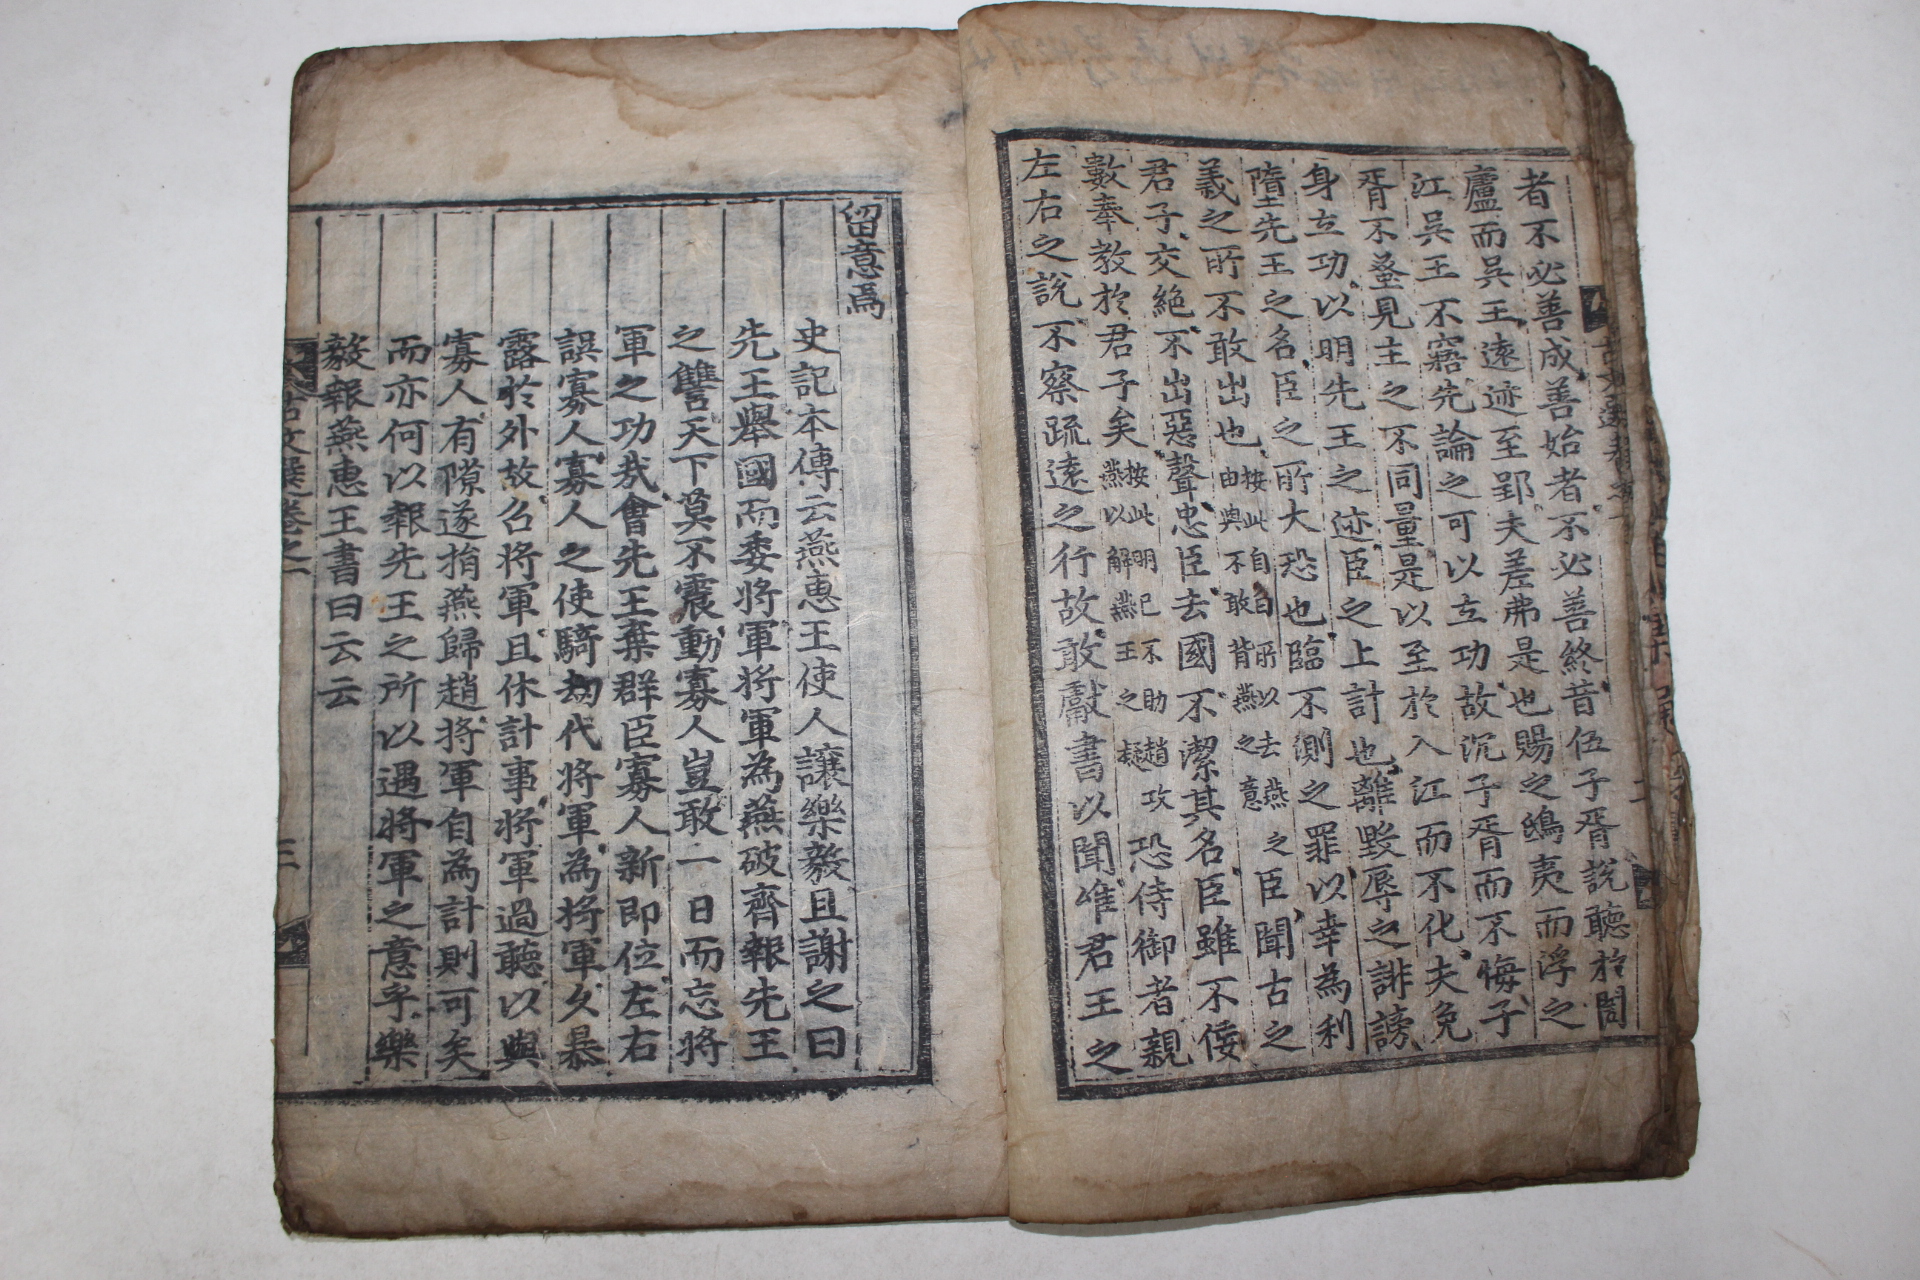 者不必善成善始者不必善終昔伍子胥說聽於闔
廬而吳王遠迹至郢夫差弗是也賜之鴟夷而浮之
江吳王不寤先論之可以立功故沉子胥而不悔子
胥不蚤見主之不同量是以至於入江而不化夫免
身立功以明先王之迹臣之上計也離毀辱之誹謗
墮先王之名臣之所大恐也臨不測之罪以幸為利
義之所不敢出也按此自白所以去燕之意
由與不敢背燕之意臣聞古之
君子交絕不出惡聲忠臣去國不潔其名臣雖不佞
數奉教於君子矣按此明己不助趙攻
燕以解燕王之疑恐侍御者親
左右之說不察疏遠之行故敢獻書以聞唯君王之
留意焉
史記本傳云燕惠王使人讓樂毅且謝之曰
先王擧國而委將軍將軍為燕破齊報先王
之讐天下莫不震動寡人豈敢一日而忘將
軍之功㢤會先王棄群臣寡人新即位左右
誤寡人寡人之使騎劫代將軍為將軍久暴
露於外故召將軍且休計事將軍過聽以與
寡人有隙遂捐燕歸趙將軍自為計則可矣
而亦何以報先王之所以遇將軍之意乎樂
毅報燕惠王書曰云云
古文選卷之二
三